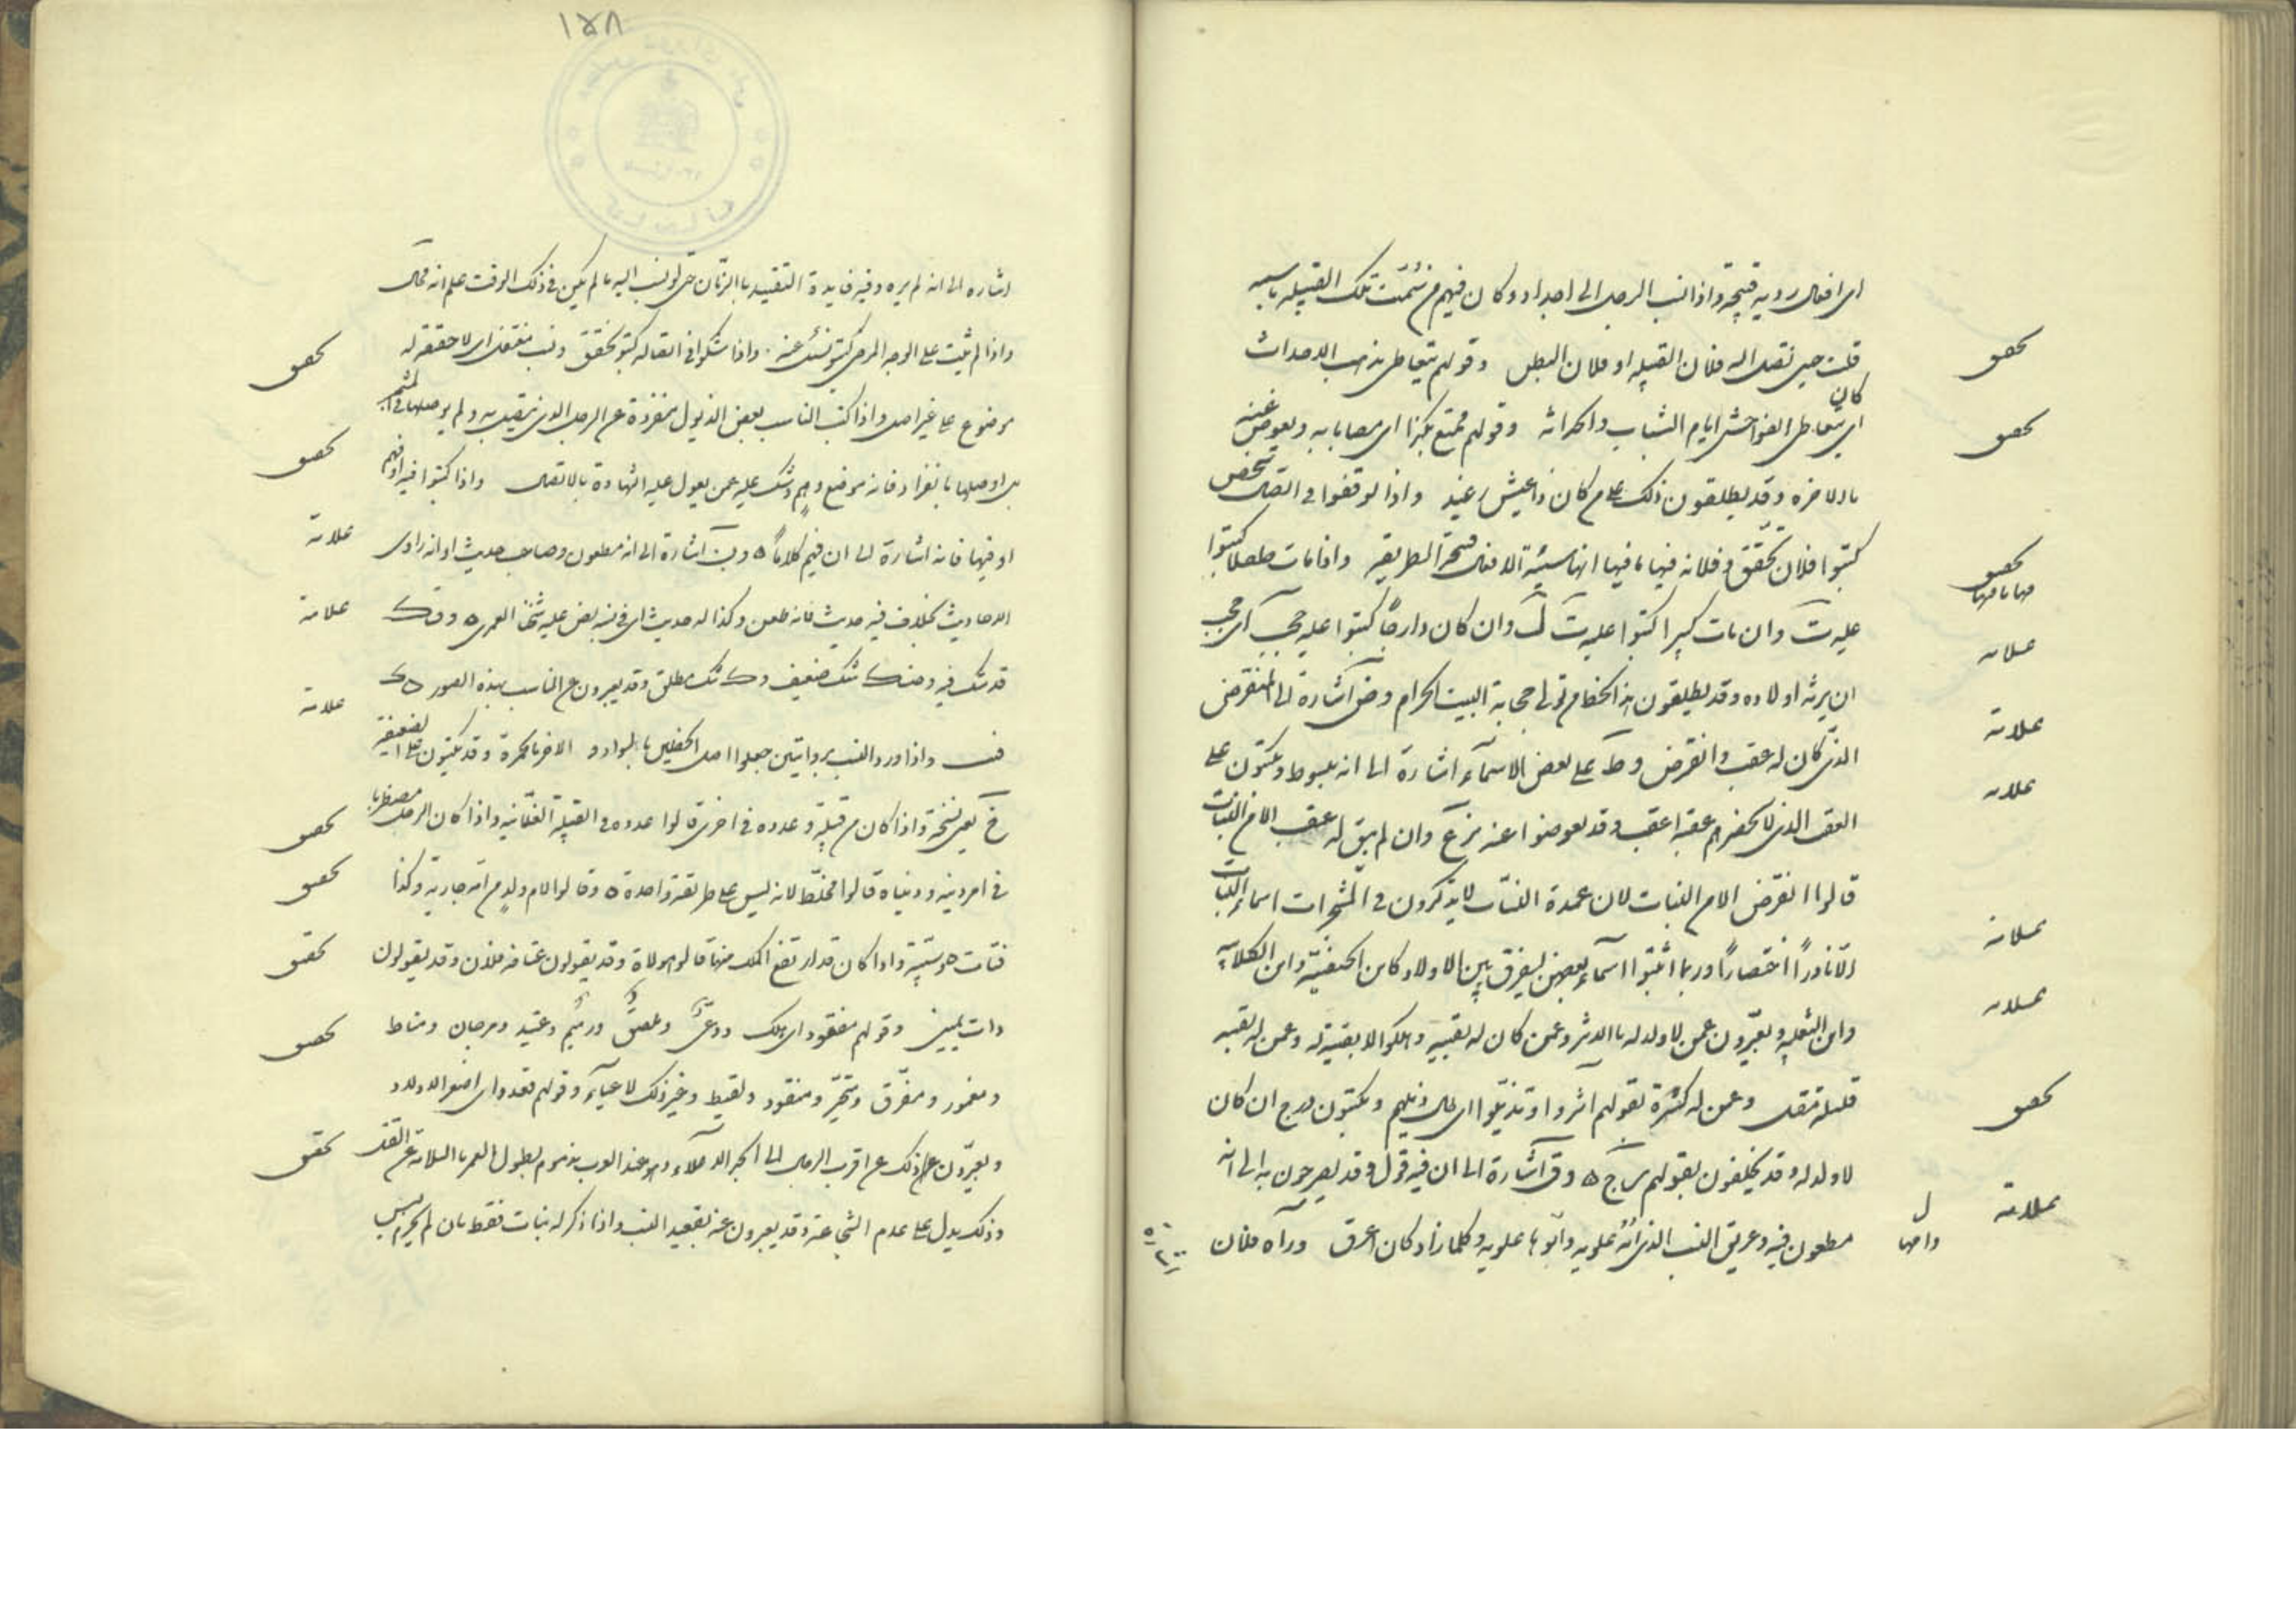 اى افعال رديه قبيحه واذا نسب الرجل الى اجداد وكان فيهم من سُمّيت تلك القبيله باسمه
قلت حين تصل اليه فلان القبيله او فلان البطن وقولهم يتعاطى مذهب الاحداث
كان
اى يتعاطى الفواحش ايام الشباب والحداثه وقولهم ممتع بكذا اى مصاب به ويعوض عنه
بالاخره وقد يطلقون ذلك على من كان ذا عيش رغيد واذا توقفوا فى اتصال شخص
كتبوا فلان يحقّق وفلانه فيها ما فيها انها سيئة الافعال قبيحة الطريقه واذا مات طفلا كتبوا
عليه ت وان مات كبيرا كتبوا عليه ت ك وان كان دارجًا كتبوا عليه حجب اى حجب
ان يرثه اولاده وقد يطلقون هذا لمن تولى حجابة البيت الحرام وض اشارة الى المنقرض
الذى كان له عقب وانقرض وط على بعض الاسمآء اشارة الى انه مبسوط ويكتبون على
العقب الذى لا يحضرهم عقبه اعقب وقد يعوضوا عنه بزع وان لم يبق له عقب الا من البنات
قالوا انقرض الا من البنات لان عمدة النسّاب لا يذكرون فى المشجرات اسماء البنات
الّا نادرًا اختصارًا وربما اثبتوا اسمآء بعضهن ليفرق بين الاولاد كابن الحنفيّه وابن الكلابيه
وابن الثعلبيه ويعبّرون عمن لا ولد له بالدثر وعمن كان له بقيه وهلكوا لا بقية له وعمن له بقيه
قليله مقل وعمن له كثرة بقولهم اثروا او تذيّلوا اى طال ذيلهم ويكتبون درج ان كان
لا ولد له وقد يخلفون بقولهم رج ه وق اشارة الى ان فيه قول وقد يصرحون به الى انه
مطعون فيه وعريق النسب الذى امّه علويه وابوها علويه وكلما زاد كان اعرق ورآه فلان
تحقيق
تحقيق
تحقيق
علامة
علامة
علامة
علامة
علامة
تحقيق
علامة
١٥٨
اشاره الى انه لم يره وفيه فايدة التقييد بالزمان حتى لو نسب اليه ما لم يكن فى ذلك الوقت علم انه محال
واذا لم يثبت على الوجه المرضى كتبوا نسئل عنه واذا شكوا فى اتصاله كتبوا يحقق ونسب مفتعل اى لا حقيقة له
موضوع على غير اصل واذا كتب الناسب بعض الذيول منفردة عن الرجل الذى يتصل به ولم يوصلها فى المشجر
بل اوصلها بانفراد فانه موضع وهم وشك عليه عمن يعول عليه الشهادة بالاتصال واذا كتبوا فيه او فيهم
او فيها فانه اشارة الى ان فيهم كلامًا ه وب اشارة الى انه مطعون وصاحب حديث او انه راوى
الاحاديث بخلاف فيه حديث فانه طعن وكذا له حديث اى فى نسبه نص عليه شيخنا العمرى ه وقك
قد شك فيه وضك شك ضعيف وك شك مطلق وقد يعبرون عن الناسب بهذه الصور ه ك
واذا ورد النسب بروايتين جعلوا احد الخطين بالسواد والاخر بالحمرة وقد يكتبون على
خ يعنى نسخة واذا كان من قبيلة وعدوه فى اخرى قالوا عدده فى القبيلة الفلانيه واذا كان الرجل مضطربا
فى امر دينه ودنياه قالوا مخلّط لانه ليس على طريقة واحدة ه وقالوا لام ولد من امه جارية وكذا
فتاة وسبيّة واذا كان قد ارتفع الملك عنها قالوا مولاة وقد يقولون عتاقه فلان وقد يقولون
ذات يمين وقولهم مفقود اى هلك ودعىّ ولصيق وزنيم وعتيد ومرجان ومناط
ومغمور ومفرق ومتحيّر ومنقود ولقيط وغير ذلك لاعيآء وقولهم قعدد اى اصغر الاولاد
ويعبرّون عن ذلك عن اقرب الرجل الى الجد الاعلى وهو عند العرب مذموم لطول العمر بالسلامة عن القتل
وذلك يدل على عدم الشجاعة وقد يعبرون عنه بقعيد النسب واذا ذكر له بنات فقط بان لم يجر ليس
تحقيق
تحقيق
علامة
علامة
علامة
تحقيق
تحقيق
تحقيق
تحقيق
تحقيق